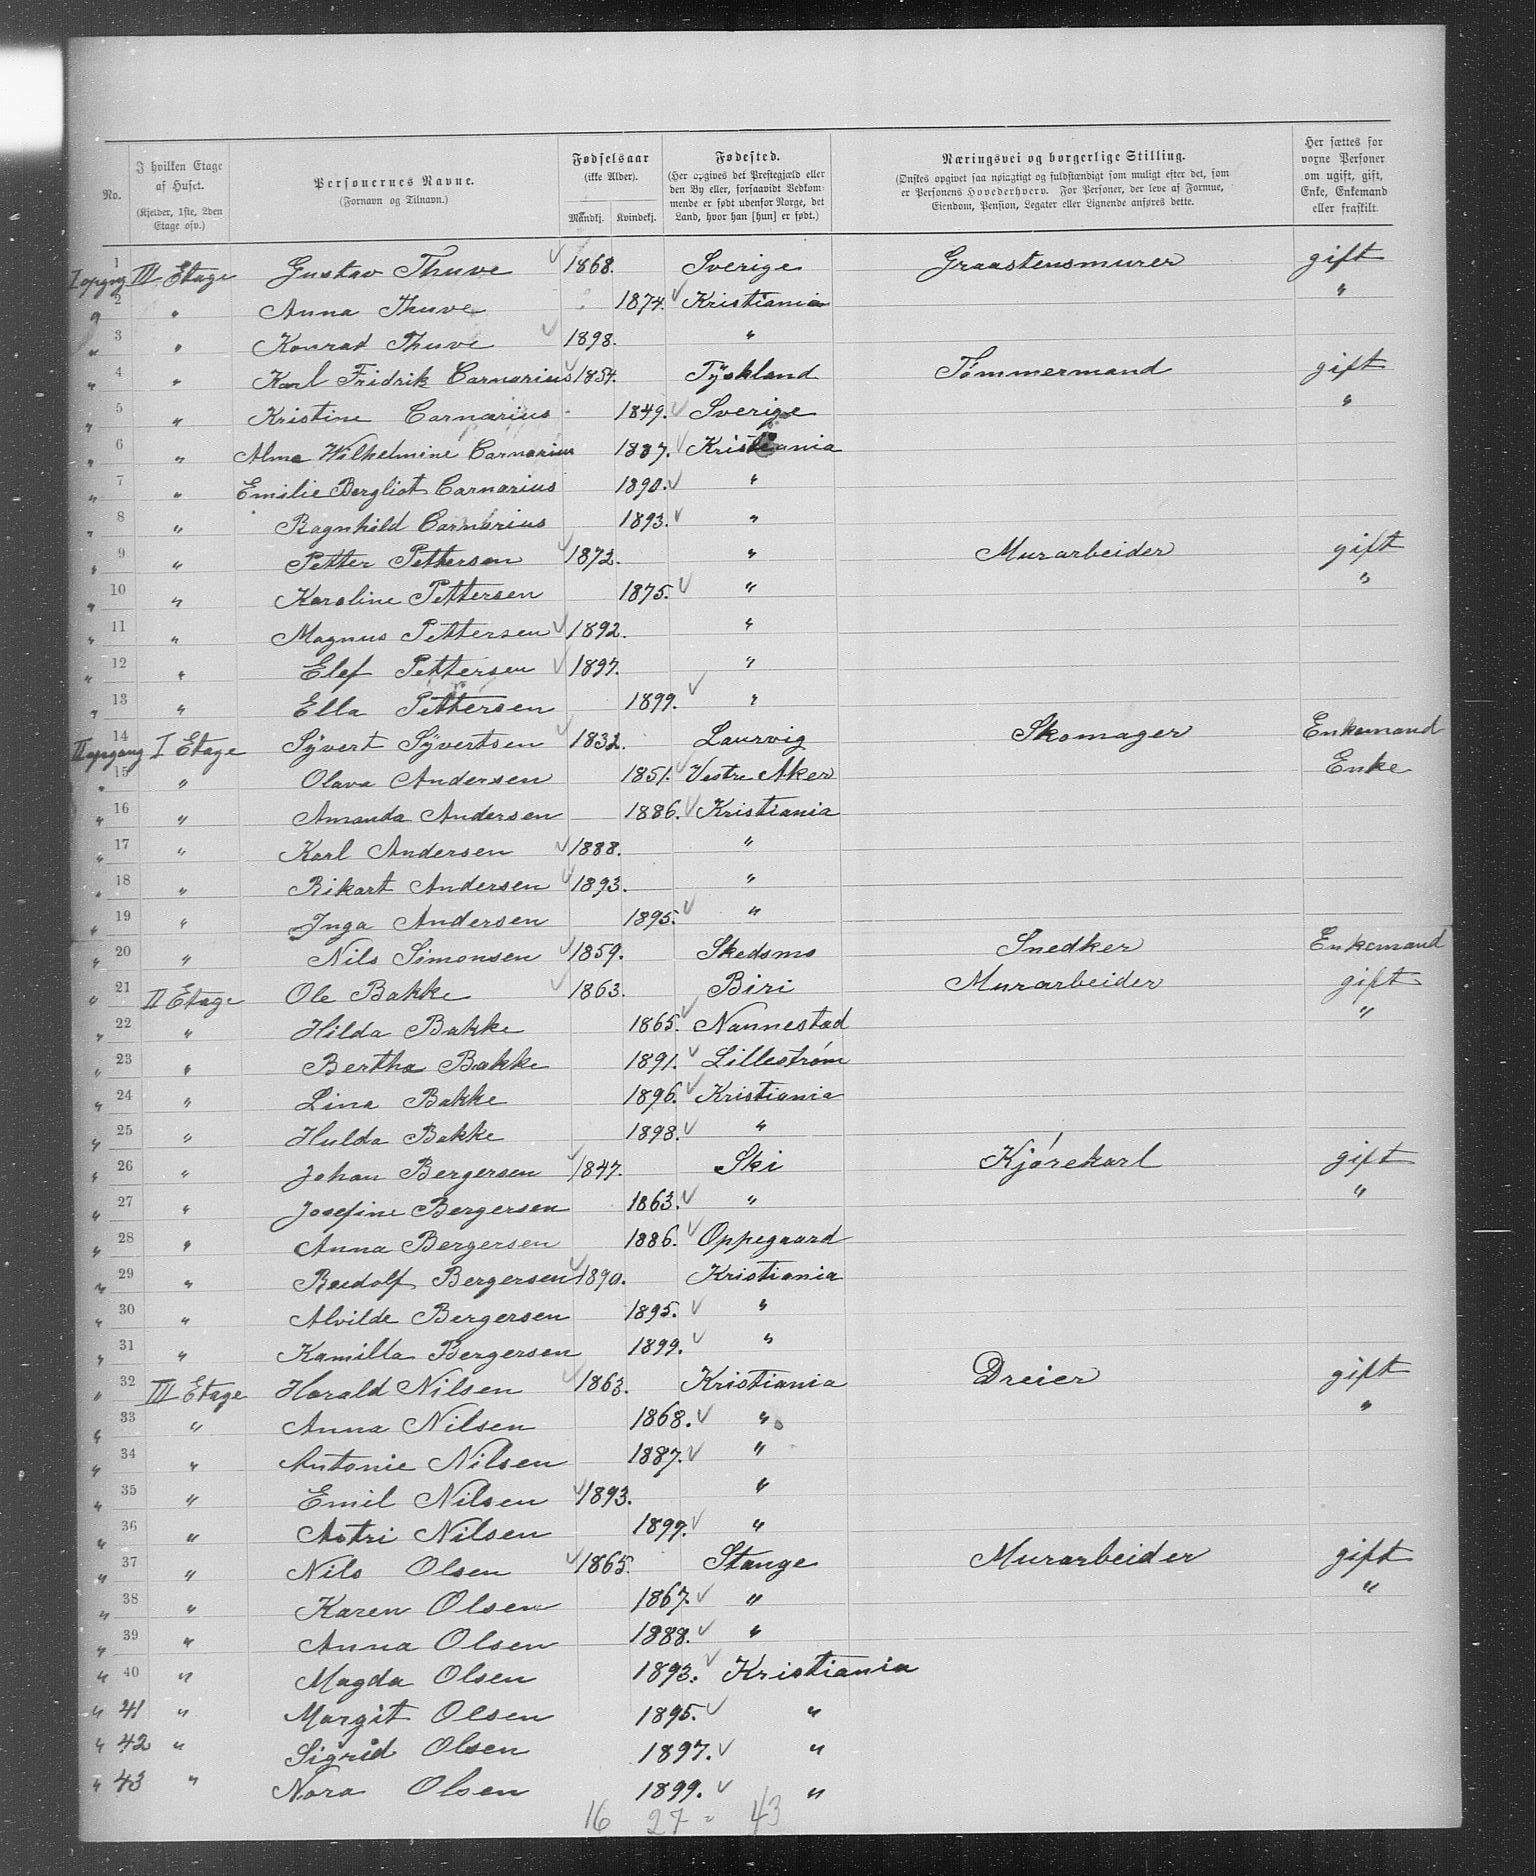 No.
I hvilken Etage af Huset.
(Kjelder, 1ste, 2den Etage osv.)
Personernes Navne.
(Fornavn og Tilnavn.)
Fødselsaar
(ikke Alder).
Mandkj. Kvindekj.
Fødested.
(Her opgives det Prestegjæld eller den By eller, forsaavidt Vedkommende er født udenfor Norge, det Land, hvor han [hun] er født.)
Næringsvei og borgerlige Stilling.
(Ønskes opgivet saa nøiagtigt og fuldstændigt som muligt efter det, som er Personens Hovederhverv. For Personer, der leve af Formue, Eiendom, Pension, Legater eller Lignende anføres dette.
Her sættes for voxne Personer om ugift, gift, Enke, Enkemand eller fraskilt.
I opgng 1 III Etage Gustav Thuve 1868. Sverige Graastensmurer gift
" 2 " Anna Thuve 1874. Kristiania "
" 3 " Konrad Thuve 1898. "
" 4 " Karl Fridrik Carnarius 1854. Tÿskland Tömmermand gift
" 5 " Kristine Carnarius 1849. Sverige "
" 6 " Alma Wilhelmine Carnarius 1887. Kristiania
" 7 " Emilie Bergliot Carnarius 1890. "
" 8 " Ragnhild Carnarius 1893. "
" 9 " Petter Pettersen 1872. " Murarbeider gift
" 10 " Karoline Pettersen 1875. " "
" 11 " Magnus Pettersen 1892. "
" 12 " Elef Pettersen 1897. "
" 13 " Ella Pettersen 1899. "
II opgang 14 I Etage Sÿvert Sÿvertsen 1832. Laurvig Skomager Enkemand
" 15 " Olava Andersen 1851. Vestre Aker Enke
" 16 " Amanda Andersen 1886. Kristiania
" 17 " Karl Andersen 1888. "
" 18 " Rikart Andersen 1893. "
" 19 " Inga Andersen 1895. "
" 20 " Nils Simonsen 1859. Skedsmo Snedker Enkemand
" 21 II Etage Ole Bakke 1863. Biri Murarbeider gift
" 22 " Hilda Bakke 1865. Nannestad "
" 23 " Bertha Bakke 1891. Lillestrøm
" 24 " Lina Bakke 1896. Kristiania
" 25 " Hulda Bakke 1898. "
" 26 " Johan Bergersen 1847. Ski Kjørekarl gift
" 27 " Josefine Bergersen 1863. " "
" 28 " Anna Bergersen 1886. Oppegaard
" 29 " Rudolf Bergersen 1890. Kristiania
" 30 " Alvilde Bergersen 1895. "
" 31 " Kamilla Bergersen 1899. "
" 32 III Etage Harald Nilsen 1863. Kristiania Dreier gift
" 33 " Anna Nilsen 1868. " "
" 34 " Antonie Nilsen 1887. "
" 35 " Emil Nilsen 1893. "
" 36 " Astri Nilsen 1897. "
" 37 " Nils Olsen 1865. Stange Murarbeider gift
" 38 " Karen Olsen 1867. " "
" 39 " Anna Olsen 1888. "
" 40 " Magda Olsen 1893. Kristiania
" 41 " Margit Olsen 1895. "
" 42 " Sigrid Olsen 1897. "
" 43 " Nora Olsen 1899. "
16 27 = 43